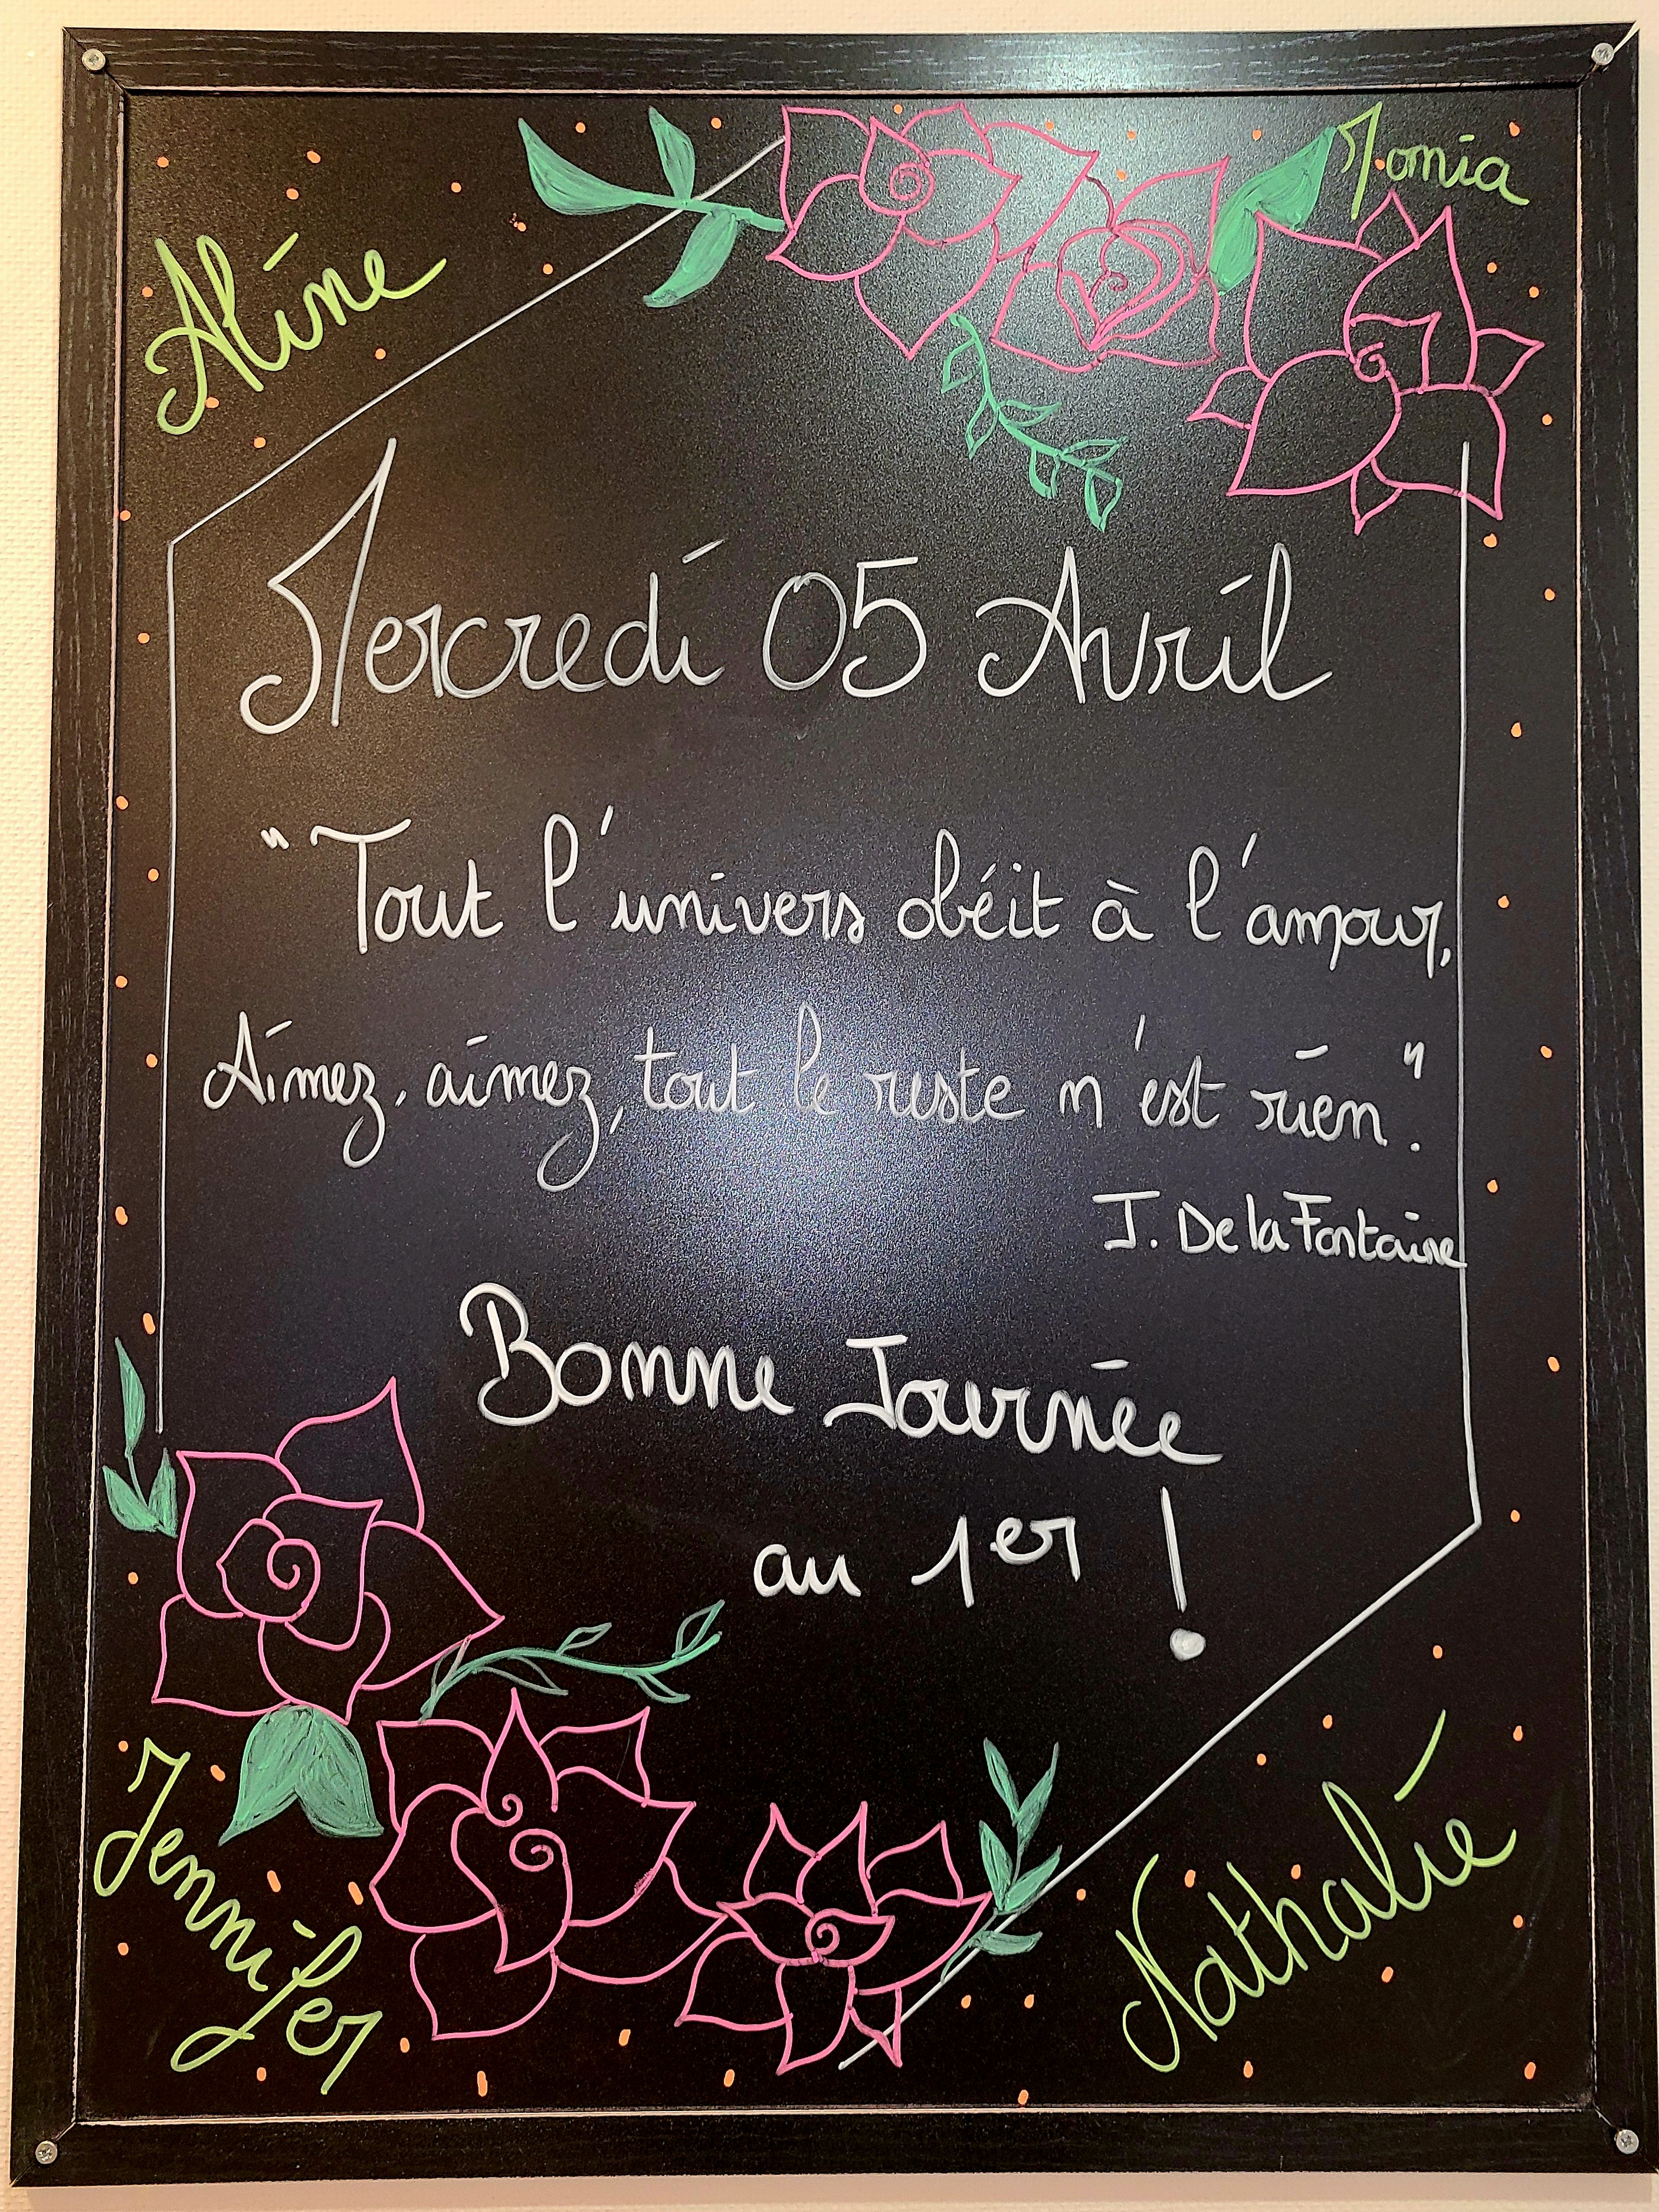 Aline
Monia
Mercredi 05 Avril
"Tout l'univers obéit à l'amour,
Aimez, aimez, tout le reste n'est rien."
J. De la Fontaine
Bonne Journée
au 1er !
Jennifer
Nathalie